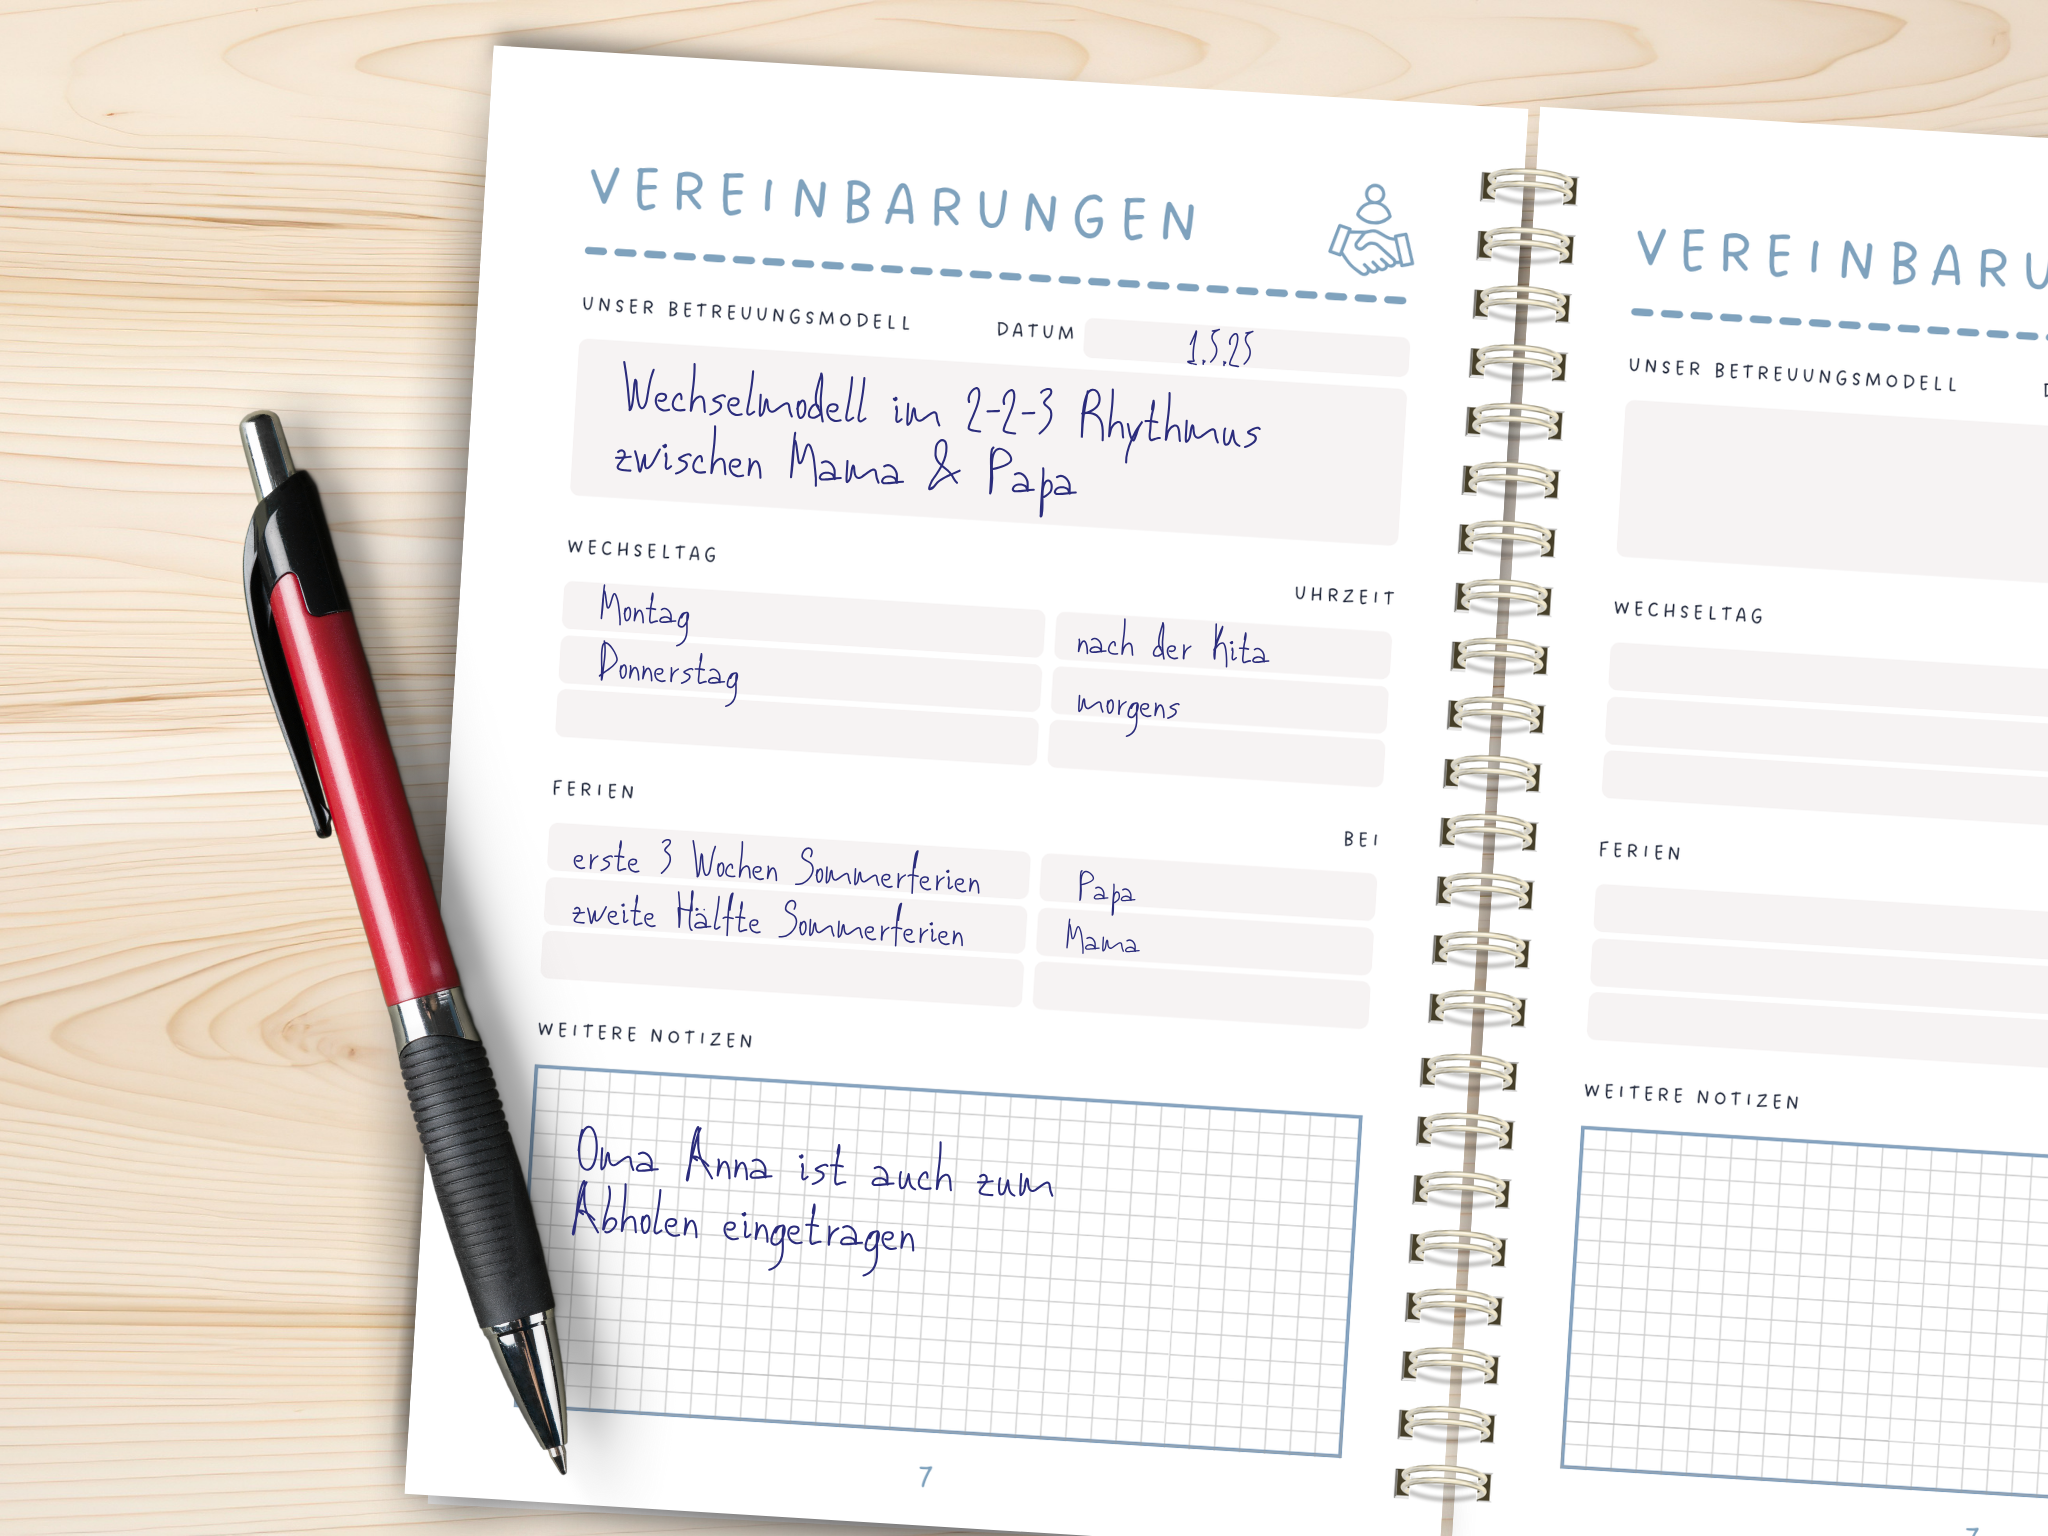 VEREINBARUNGEN
UNSER BETREUUNGSMODELL
DATUM 1.5.25
Wechselmodell im 2-2-3 Rhythmus
zwischen Mama & Papa
WECHSELTAG
UHRZEIT
Montag nach der Kita
Donnerstag morgens
FERIEN
BEI
erste 3 Wochen Sommerferien Papa
zweite Hälfte Sommerferien Mama
WEITERE NOTIZEN
Oma Anna ist auch zum
Abholen eingetragen
7
VEREINBARU
UNSER BETREUUNGSMODELL
WECHSELTAG
FERIEN
WEITERE NOTIZEN